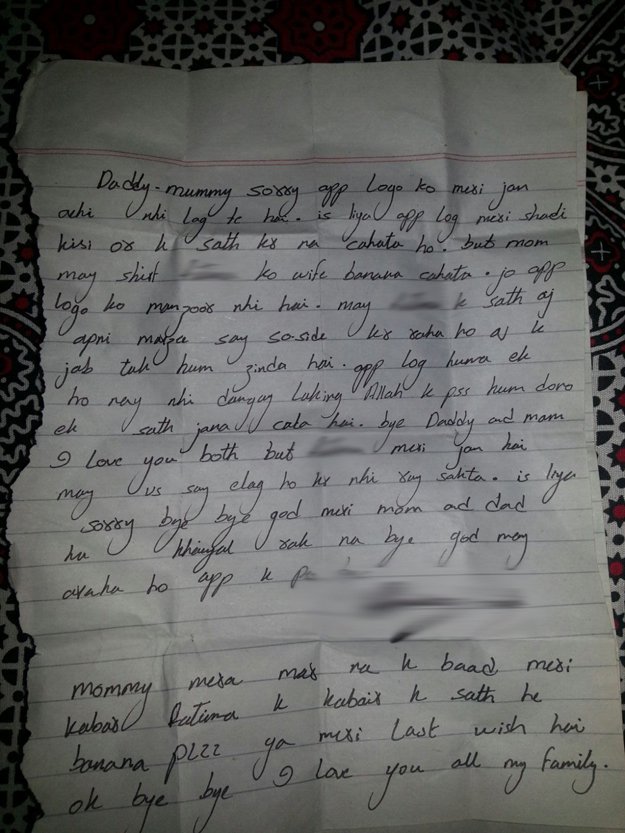 Daddy-mummy sorry app Logo ko meri jan
achi nhi log te hai. is liya app log meri shadi
kisi or k sath kr na cahata ho. but mom
may shirf ko wife banana cahata. jo app
logo ko manzoor nhi hai. may k sath aj
apni marza say so.side kr raha ho aj k
jab tak hum zinda hai. app log huma ek
ho nay nhi dangay laking Allah k pss hum doro
ek sath jana cata hai. bye Daddy ad mam
I love you both but meri jan hai
may us say elag ho kr nhi ray sakta. is liya
sorry bye bye god meri mom ad dad
ka khayal rak na bye god may
araha ho app k
mommy mera mar na k baad meri
kabar Fatima k kabair k sath he
banana plzz ya meri Last wish hai
ok bye bye I love you all my family.